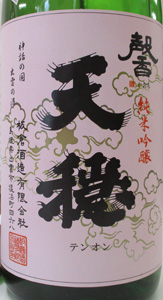 馨
純米吟醸
天穏
テンオン
神話の國
出雲の酒
板倉酒造有限会社